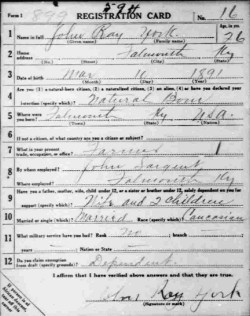 Form 1
59th
REGISTRATION CARD
No. 16
1 Name in full John Ray York Age, in yrs. 26
(Given name) (Family name)
2 Home address Falmouth Ky
(No.) (Street) (City) (State)
3 Date of birth Mar 10 1891
(Month) (Day) (Year)
4 Are you (1) a natural-born citizen, (2) a naturalized citizen, (3) an alien, (4) or have you declared your
intention (specify which)? Natural Born
5 Where were you born? Falmouth Ky USA
(Town) (State) (Nation)
6 If not a citizen, of what country are you a citizen or subject?
7 What is your present trade, occupation, or office? Farmer
8 By whom employed? John Sargent
Where employed? Falmouth Ky
9 Have you a father, mother, wife, child under 12, or a sister or brother under 12, solely dependent on you for
support (specify which)? Wife and 2 children
10 Married or single (which)? Married Race (specify which)? Caucasian
11 What military service have you had? Rank No
years Nation or State
12 Do you claim exemption from draft (specify grounds)? Dependent
I affirm that I have verified above answers and that they are true.
John Ray York
(Signature or mark)